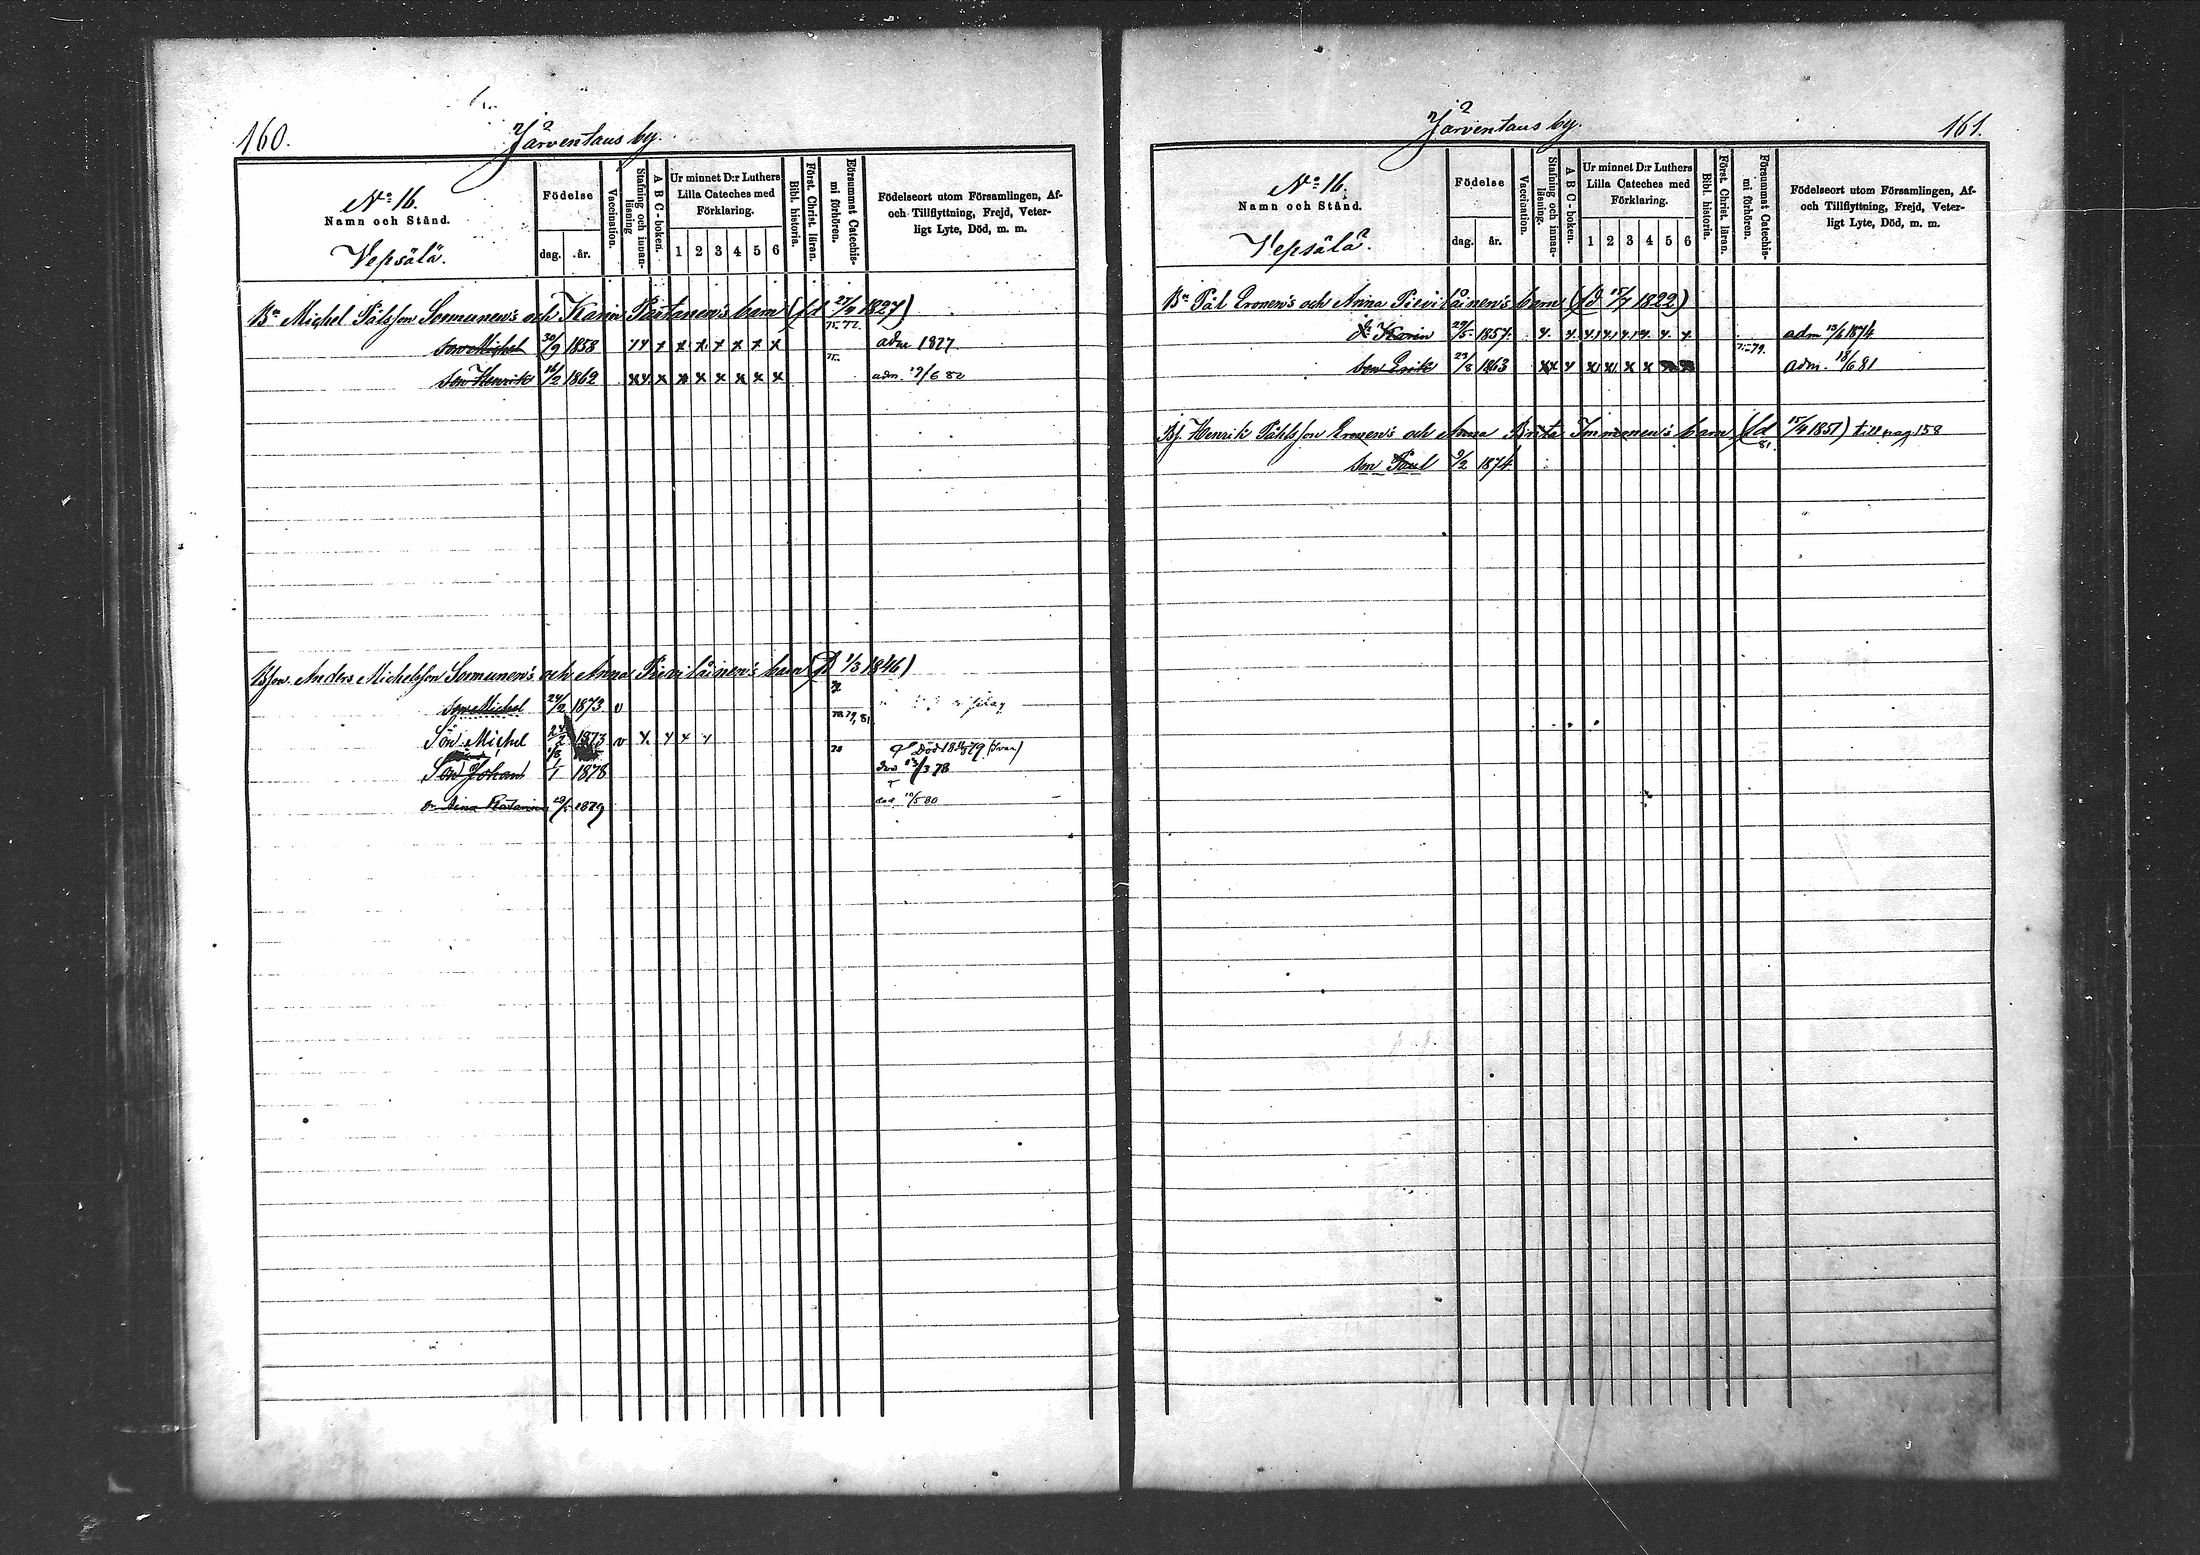 160.
Järventaus by.
No 16.
Namn och Stånd.
Vepsälä.
Födelse
dag. år.
Vaccination.
Stafning och innan-
läsning
A B C-boken.
Ur minnet D:r Luthers
Lilla Cateches med
Förklaring.
1 2 3 4 5 6
Bibl. historia.
Först. Christ. läran.
Försummat Catechis-
mi förhören.
Födelseort utom Församlingen, Af-
och Tillflyttning, Frejd, Veter-
ligt Lyte, Död, m. m.
Bn Michel Pålsson Somunen's och Karin Partanen's barn (fd 27/4 1827)
son Michel 30/9 1858 x x x x x x x x x 75. 77. adm 1877
son Henrik 16/2 1862 x x x x x x x x x 75. adm. 82
Bson Anders Michelsson Somunen's och Anna Pieviläinen's barn (fd 1/3 1846)
son Michel 24/2 1873 v
Son Michel 24/2 1873 v x x x x 78. 79, 81
78 Död 18 79 (Ivar)
Son Johan 1/1 1878 död 78
Dr Stina Katarina 1879 död 10/5 80
161.
Järventaus by.
No 16.
Namn och Stånd.
Vepsälä.
Födelse
dag. år.
Vaccination.
Stafning och innan-
läsning.
A B C-boken.
Ur minnet D:r Luthers
Lilla Cateches med
Förklaring.
1 2 3 4 5 6
Bibl. historia.
Först. Christ. läran.
Försummat Catechis-
mi förhören.
Födelseort utom Församlingen, Af-
och Tillflyttning, Frejd, Veter-
ligt Lyte, Död, m. m.
Bn Pål Eronen's och Anna Pieviläinen's barn (fd 15/7 1822)
dr Karin 29/5 1857. x x x x x x x x x adm 1874
son Erik 23/8 1863 x x x x x x x 79. adm. 18/6 81
Bf. Henrik Påhlsson Eronen's och Anna Brita Immonen's barn (fd 15/4 1851) till pag 158
son Paul 9/2 1874 81.